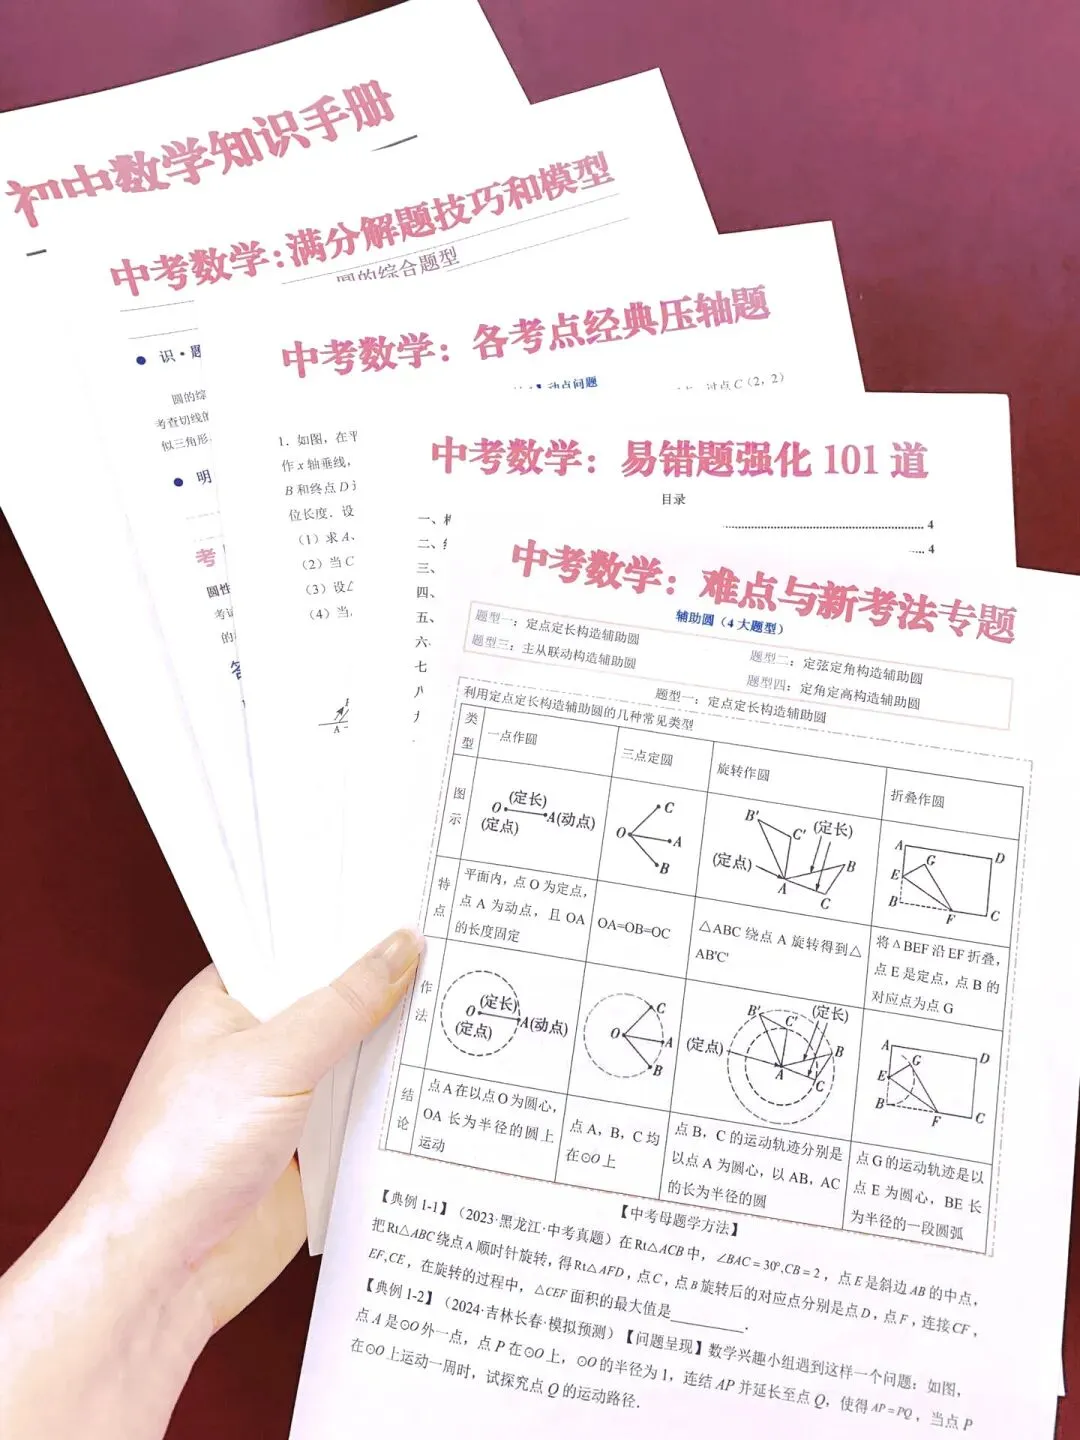 初中数学知识手册
中考数学:满分解题技巧和模型
圆的综合题型
识·题
圆的综
考查切线的
似三角形
明
考
圆性
考试
的
中考数学：各考点经典压轴题
动点问题
过点C（2，2）
1．如图，在平
作x轴垂线，
B和终点D
位长度．设
（1）求A、
（2）当C
（3）设∠
（4）当
A
中考数学：易错题强化101道
目录
一、
4
二、
4
三、
四、
五、
六、
七
八
中考数学：难点与新考法专题
辅助圆（4大题型）
题型一：定点定长构造辅助圆
题型二：定弦定角构造辅助圆
题型三：主从联动构造辅助圆
题型四：定角定高构造辅助圆
题型一：定点定长构造辅助圆
利用定点定长构造辅助圆的几种常见类型
类型 一点作圆 三点定圆 旋转作圆 折叠作圆
图示
(定长)
O A(动点)
(定点)
C
O A
B
B' C' (定长)
(定点) B
A C
A D
G
E
B F C
特点
平面内，点O为定点，
点A为动点，且OA
的长度固定
OA=OB=OC
△ABC绕点A旋转得到△
AB'C'
将△BEF沿EF折叠，
点E是定点，点B的
对应点为点G
作法
(定长)
O A(动点)
(定点)
C
O A
B
B' C' (定长)
(定点) B
A C
A D
G
E
B F C
结论
点A在以点O为圆心，
OA长为半径的圆上
运动
点A，B，C均
在⊙O上
点B，C的运动轨迹分别是
以点A为圆心，以AB，AC
的长为半径的圆
点G的运动轨迹是以
点E为圆心，BE长
为半径的一段圆弧
【中考母题学方法】
【典例1-1】（2023·黑龙江·中考真题）在Rt△ACB中，∠BAC=30°,CB=2，点E是斜边AB的中点，
把Rt△ABC绕点A顺时针旋转，得Rt△AFD，点C，点B旋转后的对应点分别是点D，点F，连接CF，
EF,CE，在旋转的过程中，△CEF面积的最大值是________．
【典例1-2】（2024·吉林长春·模拟预测）【问题呈现】数学兴趣小组遇到这样一个问题：如图，
点A是⊙O外一点，点P在⊙O上，⊙O的半径为1，连结AP并延长至点Q，使得AP=PQ，当点P
在⊙O上运动一周时，试探究点Q的运动路径．